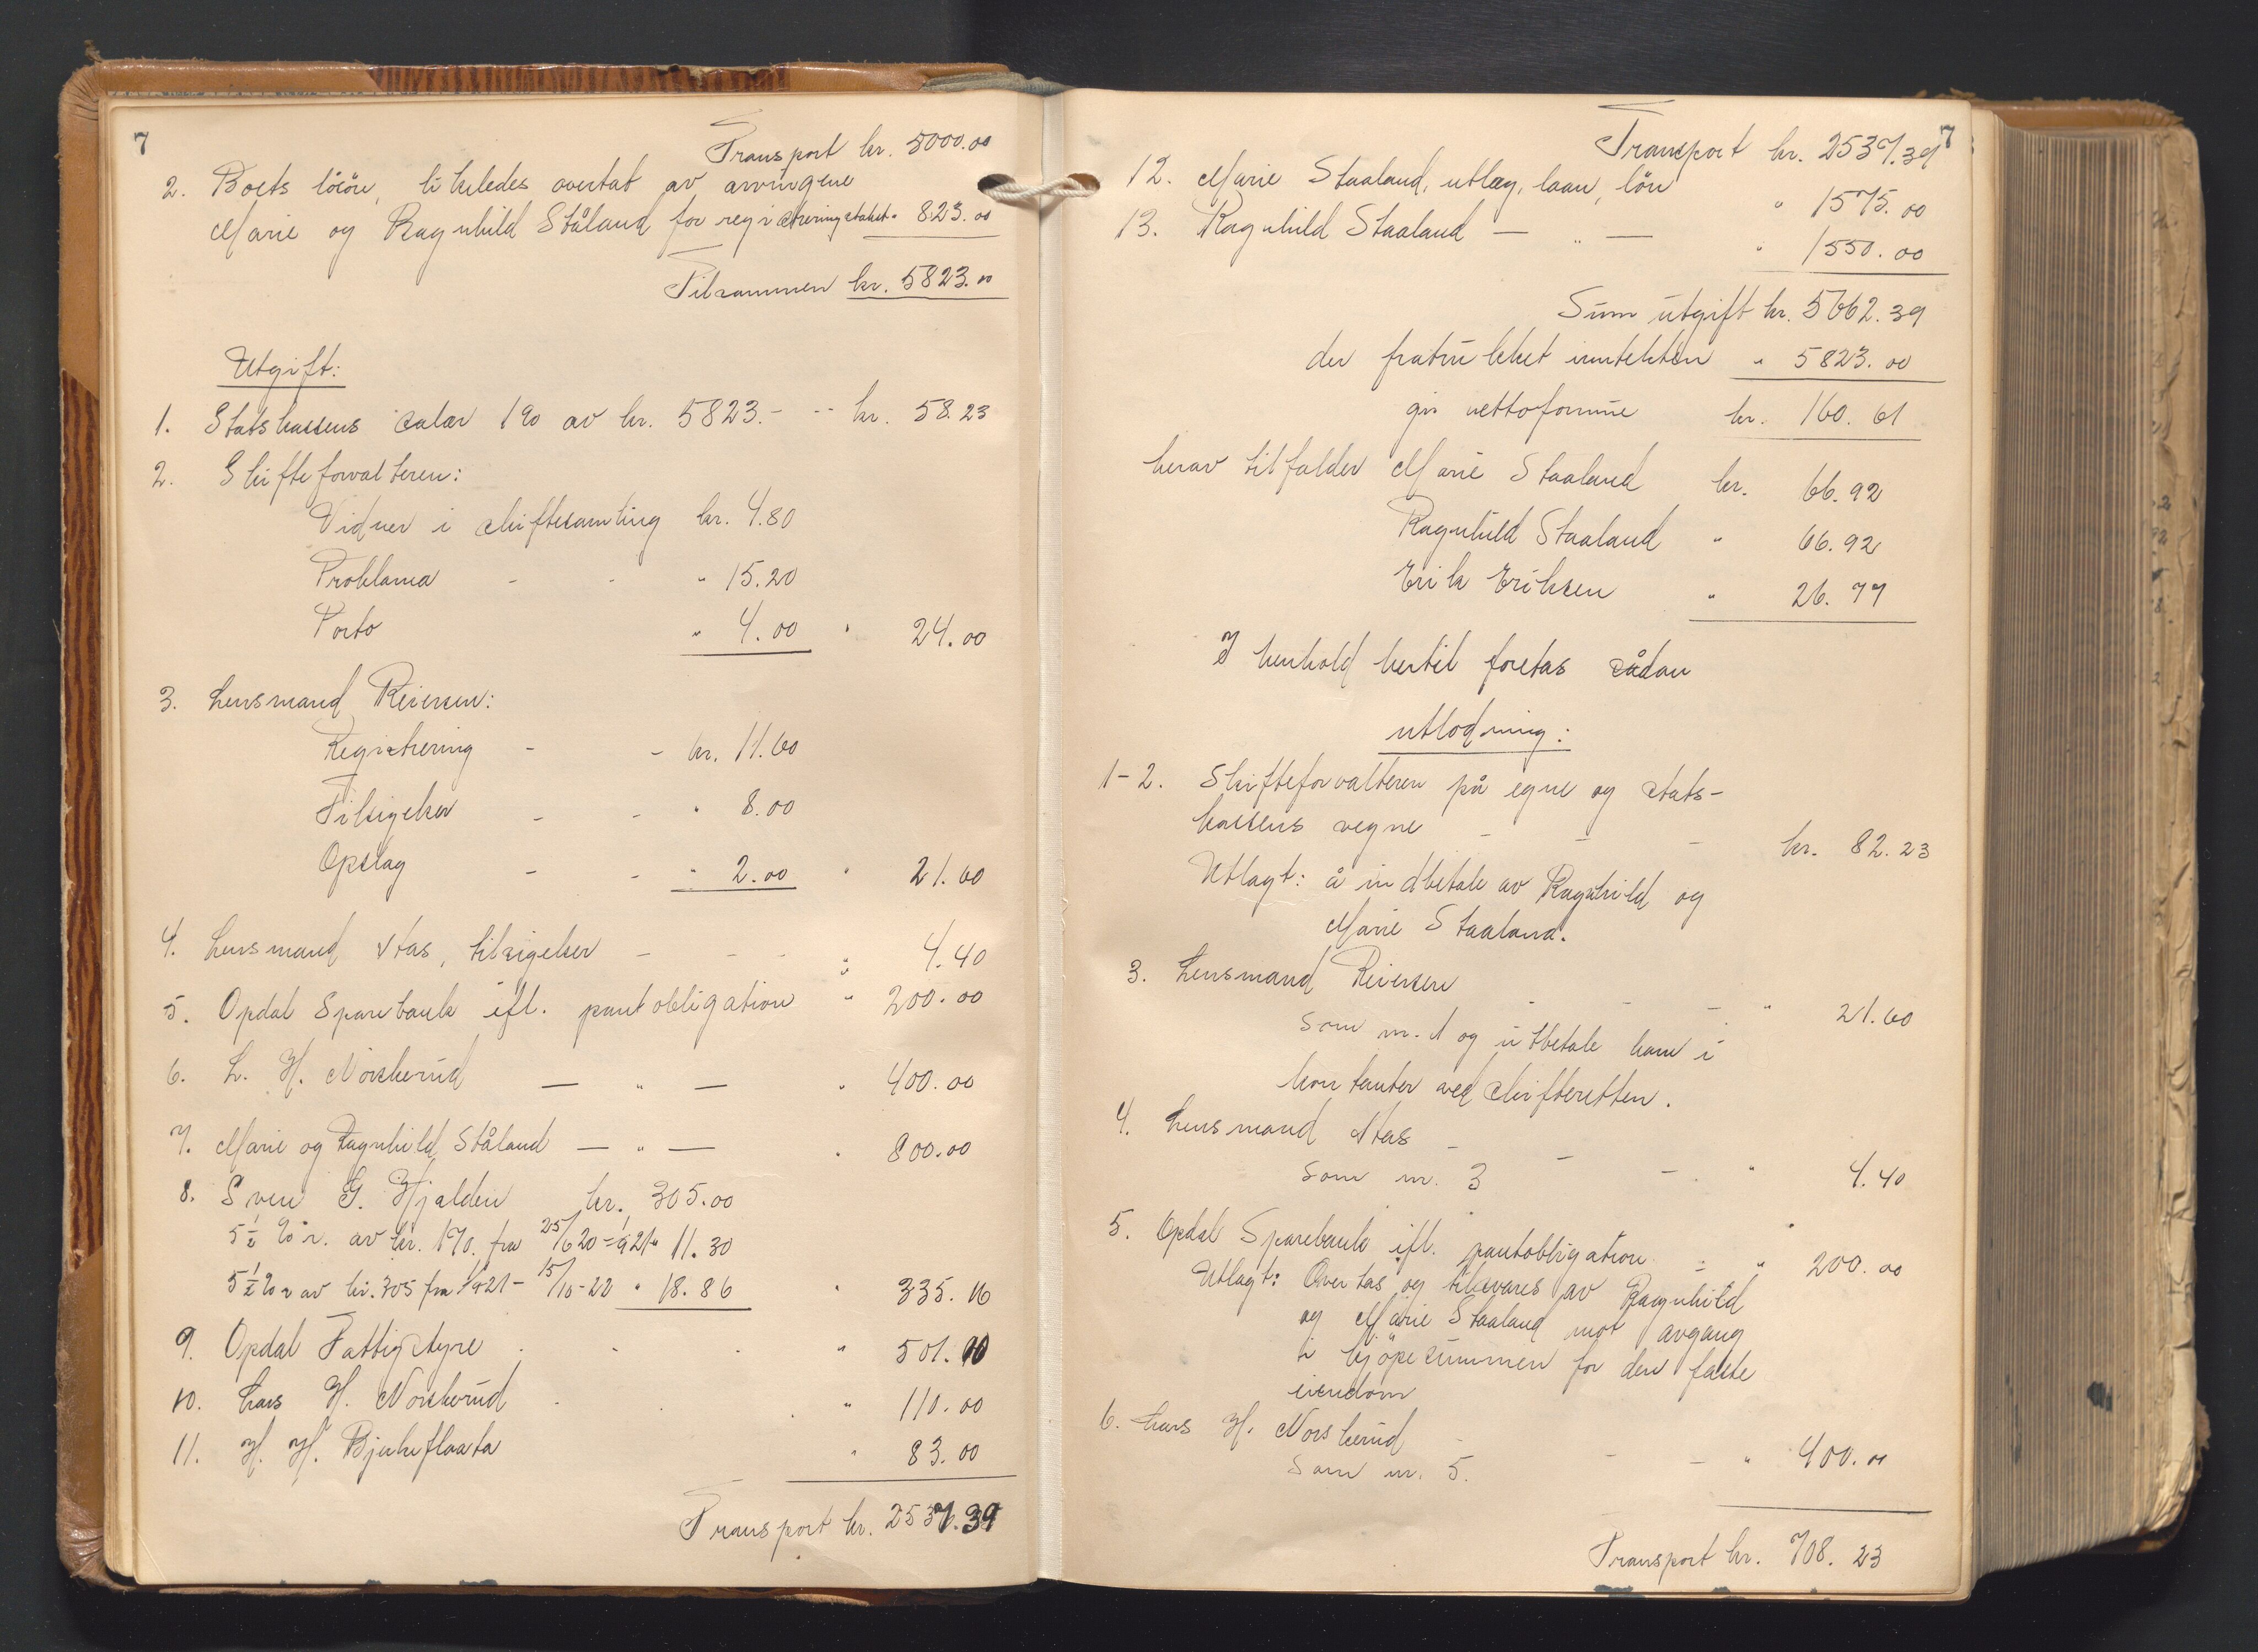 7
Transport kr. 5000.00
2. Boets løsøre, likeledes overtat av arvingene
Marie og Ragnhild Ståland for registreringstakst " 823.00
Tilsammen kr. 5823.00
Utgift:
1. Statskassens salær 1% av kr. 5823.- -- kr. 58.23
2. Skifteforvalteren:
Vidner i skiftesamling kr. 4.80
Proklama - - " 15.20
Porto " 4.00 " 24.00
3. Lensmand Reiersen:
Registrering - - kr. 11.60
Tilsigelser - - " 8.00
Opslag - - " 2.00 " 21.60
4. Lensmand Aas, tilsigelser - - - " 4.40
5. Opdal Sparebank ifl. pantobligation " 200.00
6. L. H. Norsherud — " — " 400.00
7. Marie og Ragnhild Ståland — " — " 800.00
8. Sven G. Hjalden kr. 305.00
5½ % r. av kr. 170. fra 25/6 20 - 1/9 21 " 11.30
5½ % r av kr. 305 fra 1/9 21 - 15/10-22 " 18.86 " 335.16
9. Opdal Fattigstyre . - - " 501.00
10. Lars H. Norsherud . . . " 110.00
11. H. H. Bjerkeflaata " 83.00
Transport kr. 2537.39
7
Transport kr. 2537.39
12. Marie Staaland, utlæg, laan, løn " 1575.00
13. Ragnhild Staaland — " — " 1550.00
Sum utgift kr. 5662.39
der fratrukket inntekten " 5823.00
gir nettoformue kr. 160.61
herav tilfalder Marie Staaland kr. 66.92
Ragnhild Staaland " 66.92
Erik Eriksen " 26.77
I henhold hertil foretas sådan
utlodning:
1-2. Skifteforvalteren på egne og stats-
kassens vegne - - - kr. 82.23
Utlagt: å indbetale av Ragnhild og
Marie Staaland.
3. Lensmand Reiersen - - - " 21.60
Som nr. 1 og utbetale ham i
kontanter ved skifteretten.
4. Lensmand Aas - - - " 4.40
Som nr. 3
5. Opdal Sparebank ifl. pantobligation - " 200.00
Utlagt: Overtas og tilsvares av Ragnhild
og Marie Staaland mot avgang
i kjøpesummen for den faste
eiendom
6. Lars H. Norsherud - - - " 400.00
Som nr. 5.
Transport kr. 708.23